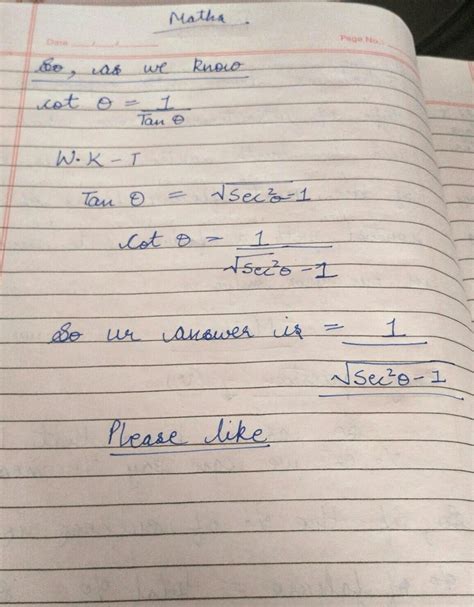 Maths
Date / / Page No.:
So, as we know
cot θ = 1/Tan θ
W.K-T
Tan θ = √Sec²θ-1
Cot θ = 1/√Sec²θ-1
So ur answer is = 1/√Sec²θ-1
Please like